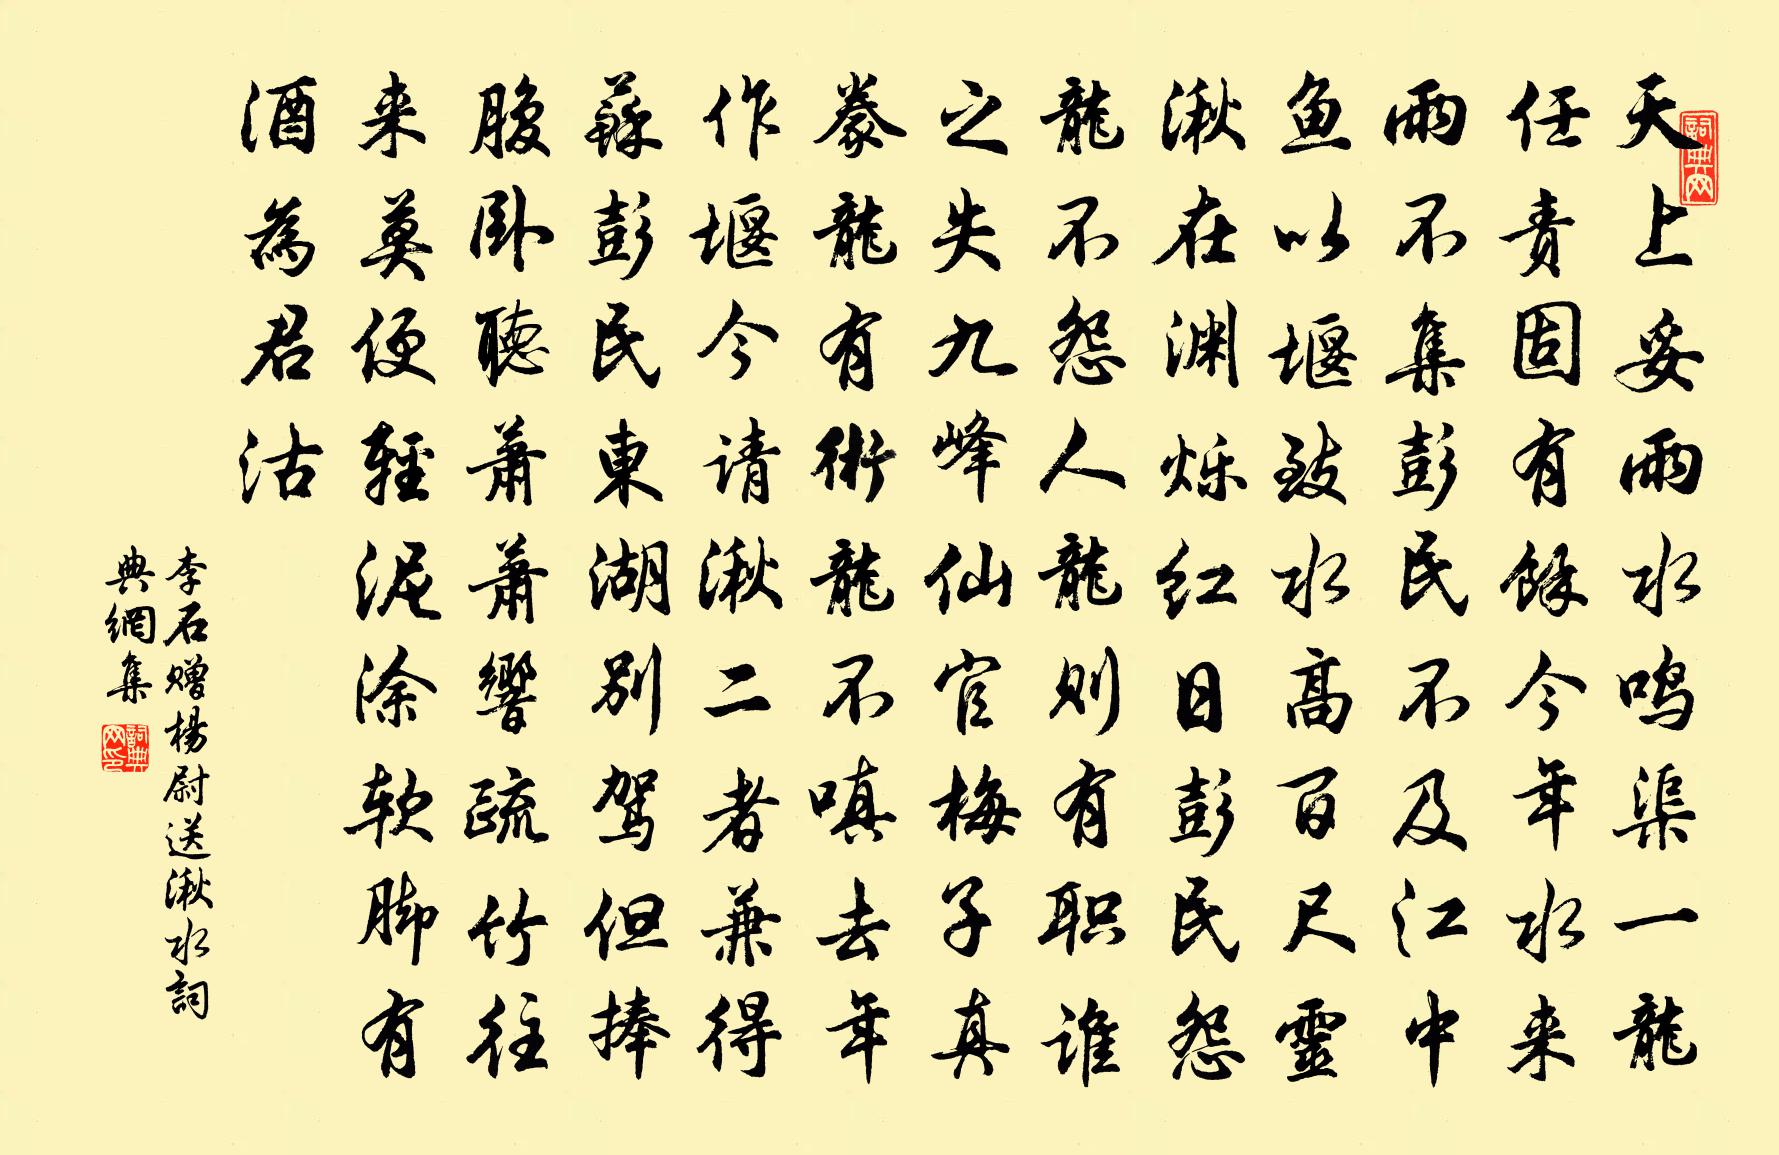 天上妥雨水鸣渠一龍
任责固有餘今年水来
雨不集彭民不及江中
鱼以堰致水高百尺靈
湫在渊烁红日彭民怨
龍不怨人龍则有职谁
之失九峰仙官梅子真
豢龍有術龍不嗔去年
作堰今请湫二者兼得
蘇彭民東湖别驾但捧
腹卧聽萧萧響疏竹往
来莫便輕泥涂软脚有
酒為君沽
李石赠楊尉送湫水詞
典網集
詞典网
詞典网印